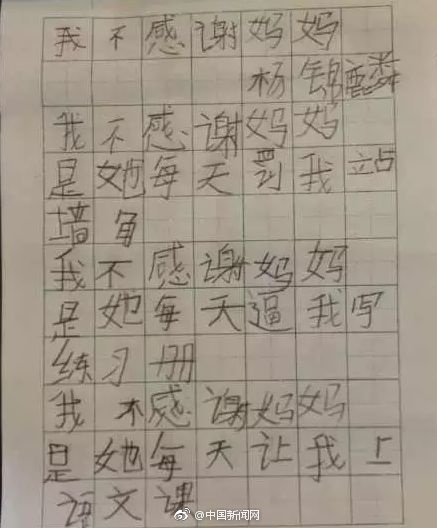 我不感谢妈妈
杨锦麟
我不感谢妈妈
是她每天罚我站
墙角
我不感谢妈妈
是她每天逼我写
练习册
我不感谢妈妈
是她每天让我上
语文课
@中国新闻网